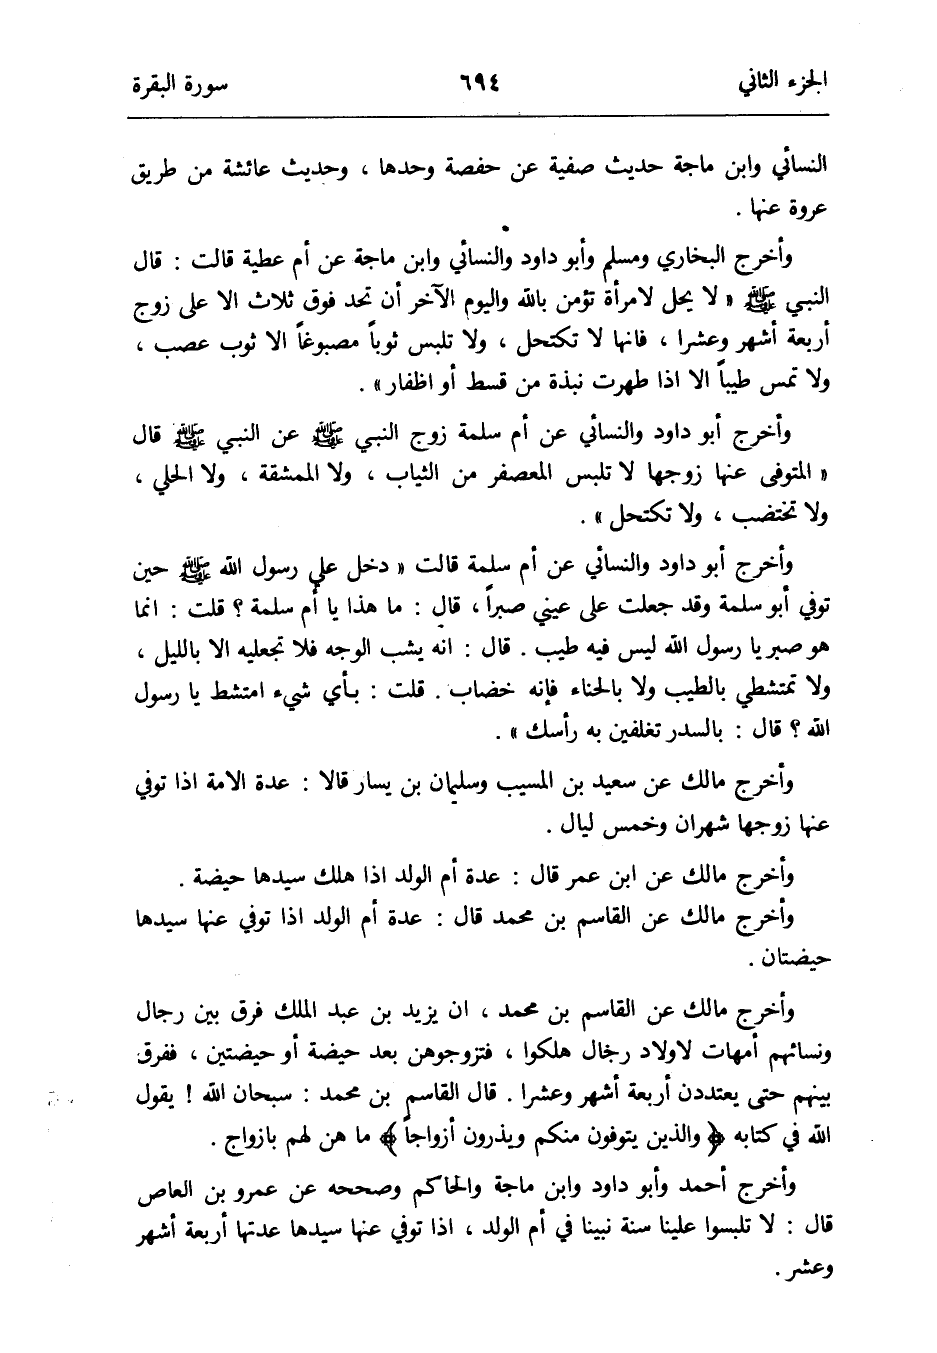 الجزء الثاني ٦٩٤ سورة البقرة
النسائي وابن ماجة حديث صفية عن حفصة وحدها ، وحديث عائشة من طريق
عروة عنها .
وأخرج البخاري ومسلم وأبو داود والنسائي وابن ماجة عن أم عطية قالت : قال
النبي ﷺ « لا يحل لامرأة تؤمن بالله واليوم الآخر أن تحد فوق ثلاث الا على زوج
أربعة أشهر وعشرا ، فانها لا تكتحل ، ولا تلبس ثوباً مصبوغاً الا ثوب عصب ،
ولا تمس طيباً الا اذا طهرت نبذة من قسط أو اظفار » .
وأخرج أبو داود والنسائي عن أم سلمة زوج النبي ﷺ عن النبي ﷺ قال
« المتوفى عنها زوجها لا تلبس المعصفر من الثياب ، ولا الممشقة ، ولا الحلي ،
ولا تختضب ، ولا تكتحل » .
وأخرج أبو داود والنسائي عن أم سلمة قالت « دخل علي رسول الله ﷺ حين
توفي أبو سلمة وقد جعلت على عيني صبراً ، قال : ما هذا يا أم سلمة ؟ قلت : انما
هو صبر يا رسول الله ليس فيه طيب . قال : انه يشب الوجه فلا تجعليه الا بالليل ،
ولا تمتشطي بالطيب ولا بالحناء فإنه خضاب . قلت : بأي شيء امتشط يا رسول
الله ؟ قال : بالسدر تغلفين به رأسك » .
وأخرج مالك عن سعيد بن المسيب وسليمان بن يسار قالا : عدة الامة اذا توفي
عنها زوجها شهران وخمس ليال .
وأخرج مالك عن ابن عمر قال : عدة أم الولد اذا هلك سيدها حيضة .
وأخرج مالك عن القاسم بن محمد قال : عدة أم الولد اذا توفي عنها سيدها
حيضتان .
وأخرج مالك عن القاسم بن محمد ، ان يزيد بن عبد الملك فرق بين رجال
ونسائهم أمهات لاولاد رجال هلكوا ، فتزوجوهن بعد حيضة أو حيضتين ، ففرق
بينهم حتى يعتددن أربعة أشهر وعشرا . قال القاسم بن محمد : سبحان الله ! يقول
الله في كتابه ﴿ والذين يتوفون منكم ويذرون أزواجاً ﴾ ما هن لهم بازواج .
وأخرج أحمد وأبو داود وابن ماجة والحاكم وصححه عن عمرو بن العاص
قال : لا تلبسوا علينا سنة نبينا في أم الولد ، اذا توفي عنها سيدها عدتها أربعة أشهر
وعشر .